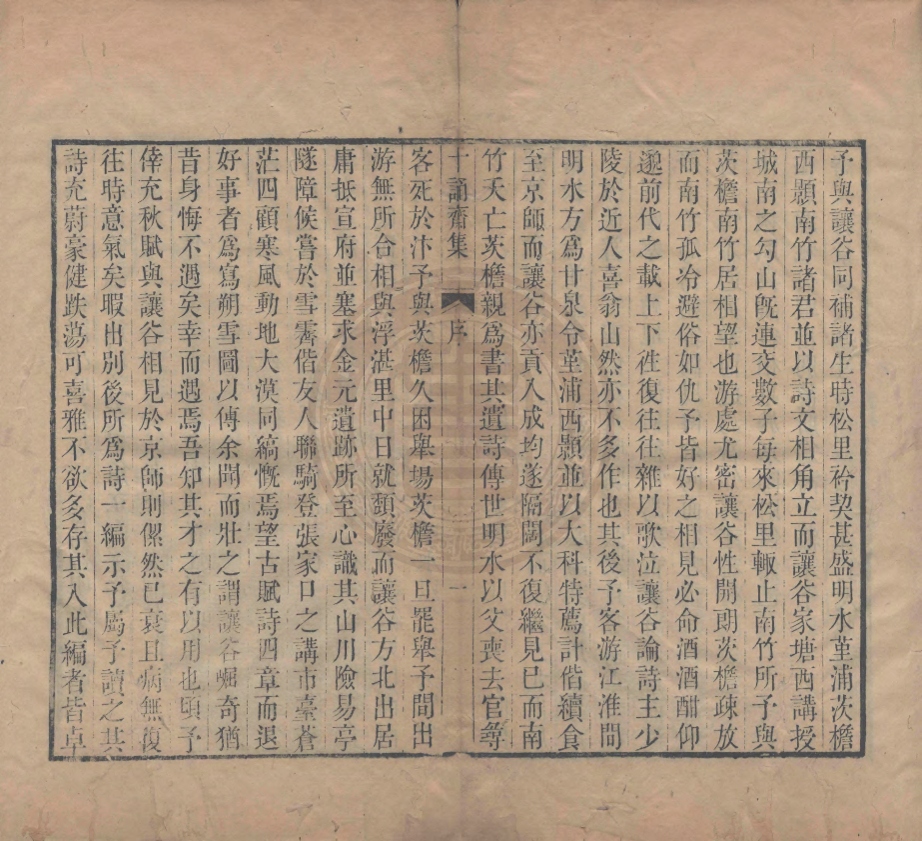 予與讓谷同補諸生時松里衿契甚盛明水堇浦茨檐
西顥南竹諸君並以詩文相角立而讓谷家塘西講授
城南之勾山旣連交數子每來松里輙止南竹所予與
茨檐南竹居相望也游處尤密讓谷性開朗茨檐疎放
而南竹孤冷避俗如仇予皆好之相見必命酒酒酣仰
邈前代之載上下徃復往往雜以歌泣讓谷論詩主少
陵於近人喜翁山然亦不多作也其後予客游江淮間
明水方爲甘泉令堇浦西顥並以大科特薦計偕續食
至京師而讓谷亦貢入成均遂隔闊不復繼見已而南
竹夭亡茨檐親爲書其遺詩傳世明水以父喪去官等
十誦齋集 序 一
客死於汴予與茨檐久困舉場茨檐一旦罷舉予間出
游無所合相與浮湛里中日就頽廢而讓谷方北出居
庸抵宣府並塞求金元遺跡所至心識其山川險易亭
隧障候嘗於雪霽偕友人聯騎登張家口之講市臺蒼
茫四顧寒風動地大漠同縞慨焉望古賦詩四章而退
好事者爲寫朔雪圖以傳余聞而壯之謂讓谷崛奇猶
昔身悔不遇矣幸而遇焉吾知其才之有以用也頃予
倖充秋賦與讓谷相見於京師則傫然已衰且病無復
往時意氣矣暇出別後所爲詩一編示予屬予讀之其
詩充蔚豪健跌蕩可喜雅不欲多存其入此編者皆卓